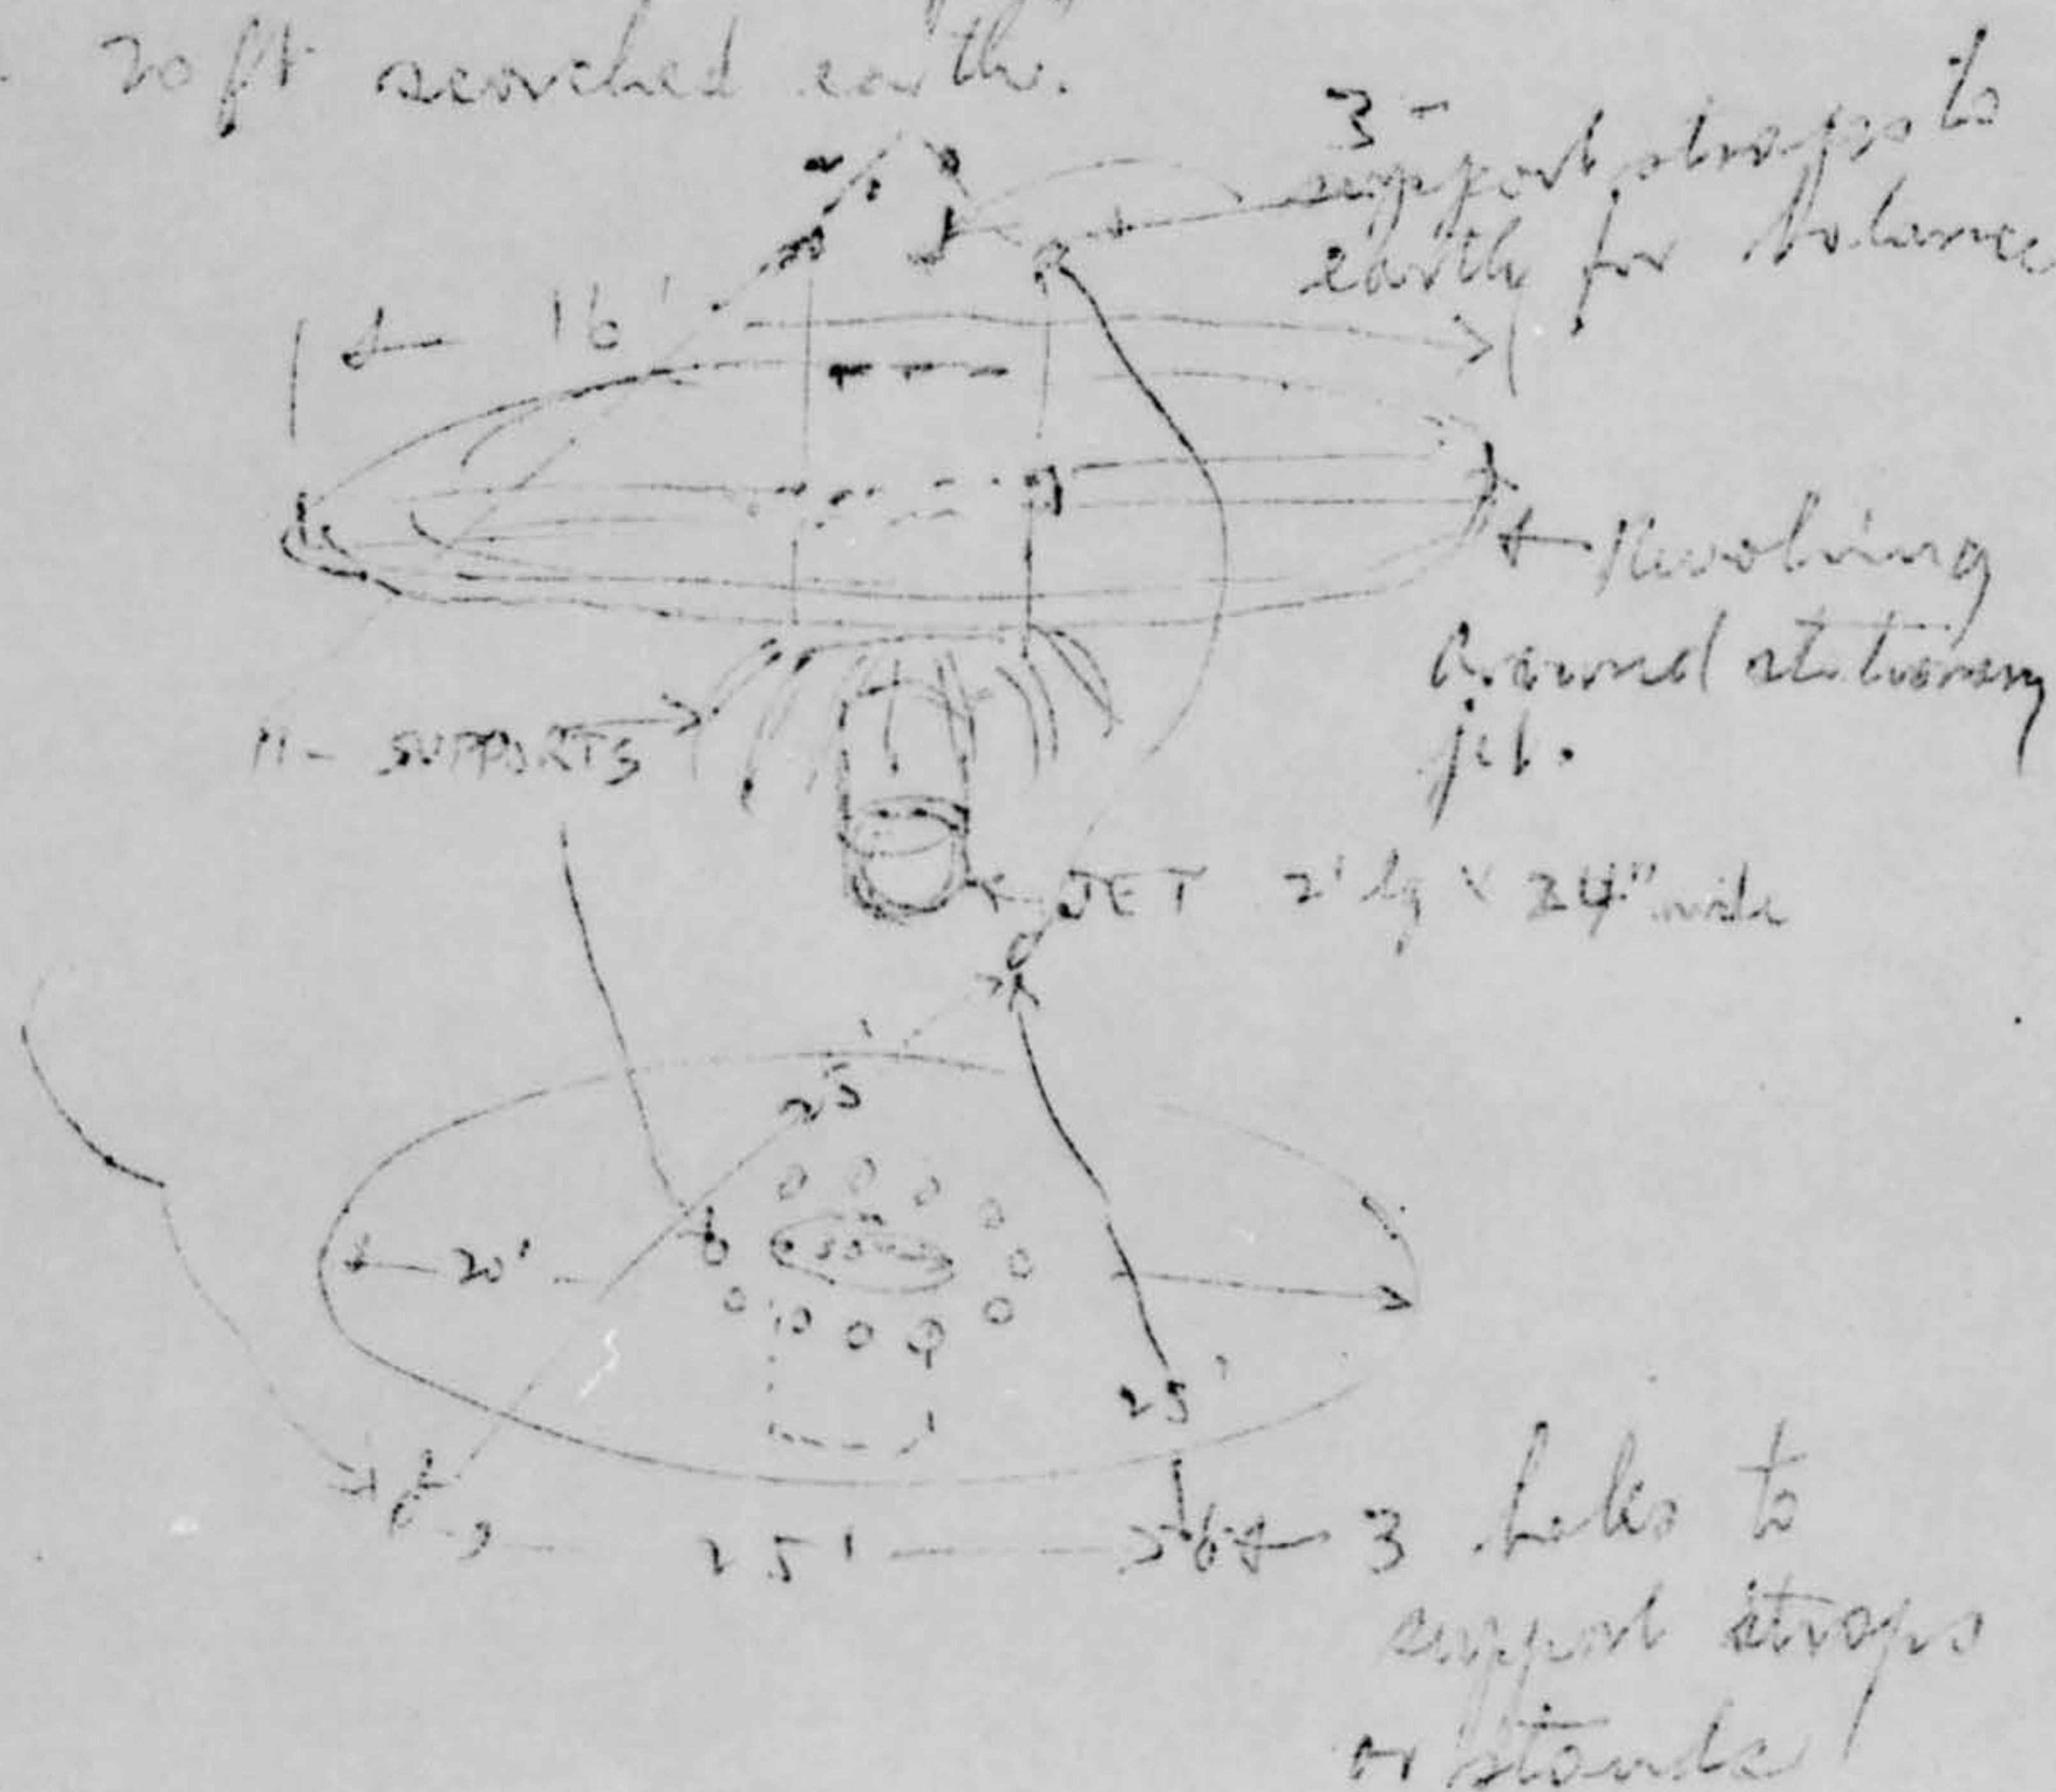 20 ft scorched earth.
3 -
support straps to
earth for balance
16'
Revolving
around stationary
jet.
11 - SUPPORTS
JET 2' lg x 24" wide
25'
20'
25'
25'
3 holes to
support straps
or stands